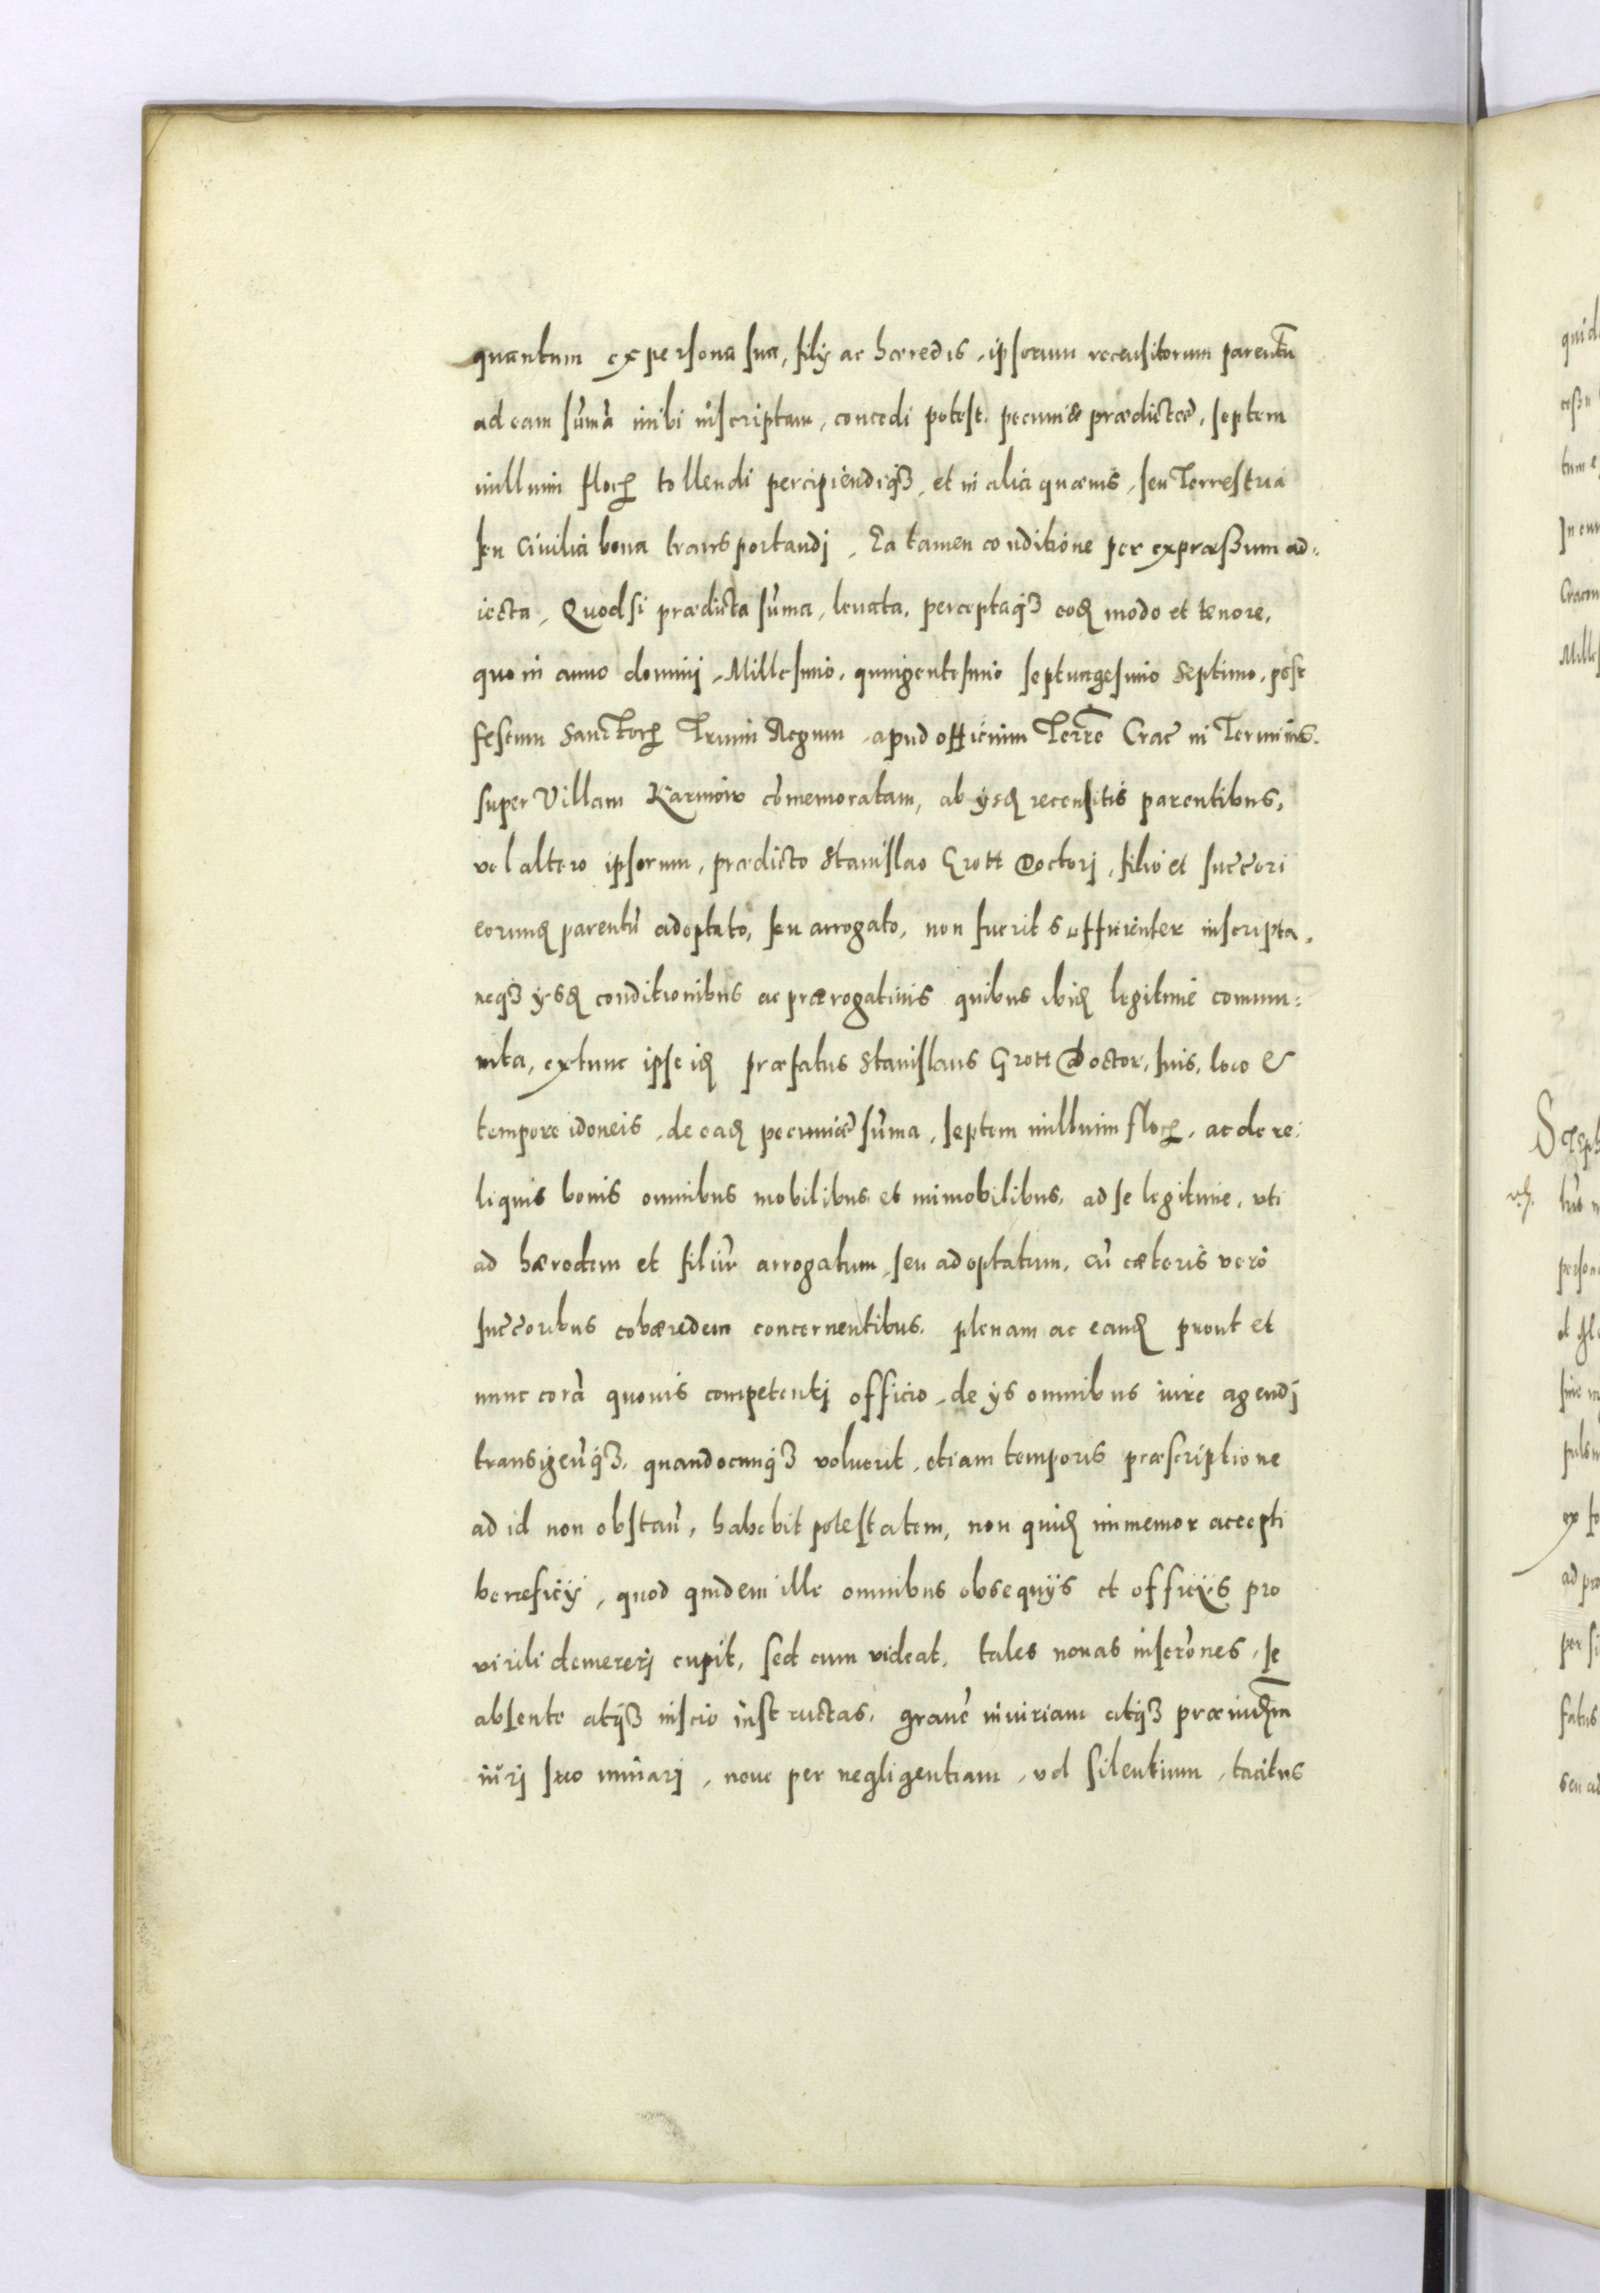 quantum ex persona sua, filÿ ac hæredis, ipsorum recensitorum parentū
ad eam sum̄ā inibi inscriptam, concedi potest, pecuniæ prædictæ, septem
millium floꝝ tollendi percipiendiqꝫ, et in alia quævis, seu Terrestria
seu Civilia bona transportandj, Ea tamen conditione per expræßum ad-
iecta, Quod si prædicta sum̄a, levata, perceptaqꝫ eoꝺ modo et tenore,
quo in anno dominj Millesimo, quingentesimo septuagesimo Septimo, post
festum Sanctoꝝ Trium Regum apud officium Terrē Crac̄ in Terminis
super Villam Karniow cōmemoratam, ab ÿsꝺ recensitis parentibus,
vel altero ipsorum, prædicto Stanislao Grott Doctorj, filio et succ̄ori
eorumꝺ parentū adoptato, seu arrogato, non fuerit sufficienter inscripta,
neqꝫ ÿsꝺ conditionibus ac prærogativis quibus ibiꝺ legitime comuni-
nita, extunc ipse iꝺ præfatus Stanislaus Grott Doctor, suis, loco &
tempore idoneis, de eaꝺ pecuniæ sum̄a, septem millium floꝝ, ac de re-
liquis bonis omnibus mobilibus et immobilibus, ad se legitime, uti
ad hæredem et filiūm arrogatum, seu adoptatum, cū cæteris vero
succ̄oribus cohæredem concernentibus, plenam ac eanꝺ prout et
nunc corā quovis competentj officio, de ÿs omnibus iure agendj
transigen̄qꝫ, quandocunqꝫ voluerit, etiam temporis præscriptione
ad id non obstan̄, habebit potestatem, non quiꝺ immemor accepti
beneficÿ, quod quidem ille omnibus obsequÿs et officÿs pro
virili demererj cupit, sed cum videat, tales novas inscrōnes, se
absente atqꝫ inscio instructas, gravē iniuriam atqꝫ præiudm̄
iūrj suo minarj, nonc per negligentiam, vel silentium, tacitus